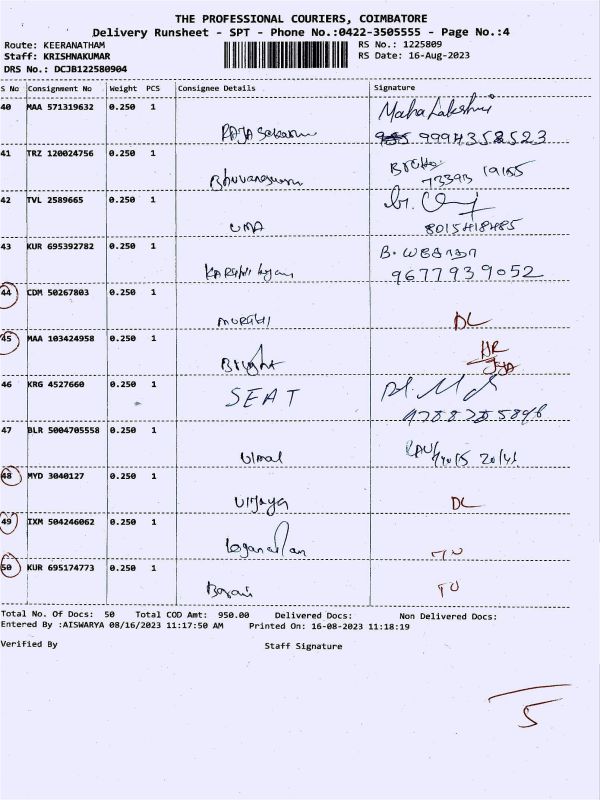 THE PROFESSIONAL COURIERS, COIMBATORE
Delivery Runsheet - SPT - Phone No.:0422-3505555 - Page No.:4
Route: KEERANATHAM RS No.: 1225809
Staff: KRISHNAKUMAR RS Date: 16-Aug-2023
DRS No.: DCJB122580904
S No Consignment No Weight PCS Consignee Details Signature
40 MAA 571319632 0.250 1 Maha Lakshmi
RAJA Sekaran 9994358523
41 TRZ 120024756 0.250 1
Bhuvaneswari 73393 19155
42 TVL 2589665 0.250 1
UMA 8015418485
43 KUR 695392782 0.250 1 B.
9677939052
44 CDM 50267803 0.250 1
MURALI DL
45 MAA 103424958 0.250 1 HR
Bright
46 KRG 4527660 0.250 1 SEAT
47 BLR 5004705558 0.250 1
Vimal
48 MYD 3040127 0.250 1
Vijaya DL
49 IXM 504246062 0.250 1
Loganathan
50 KUR 695174773 0.250 1
Total No. Of Docs: 50 Total COD Amt: 950.00 Delivered Docs: Non Delivered Docs:
Entered By :AISWARYA 08/16/2023 11:17:50 AM Printed On: 16-08-2023 11:18:19
Verified By Staff Signature
5